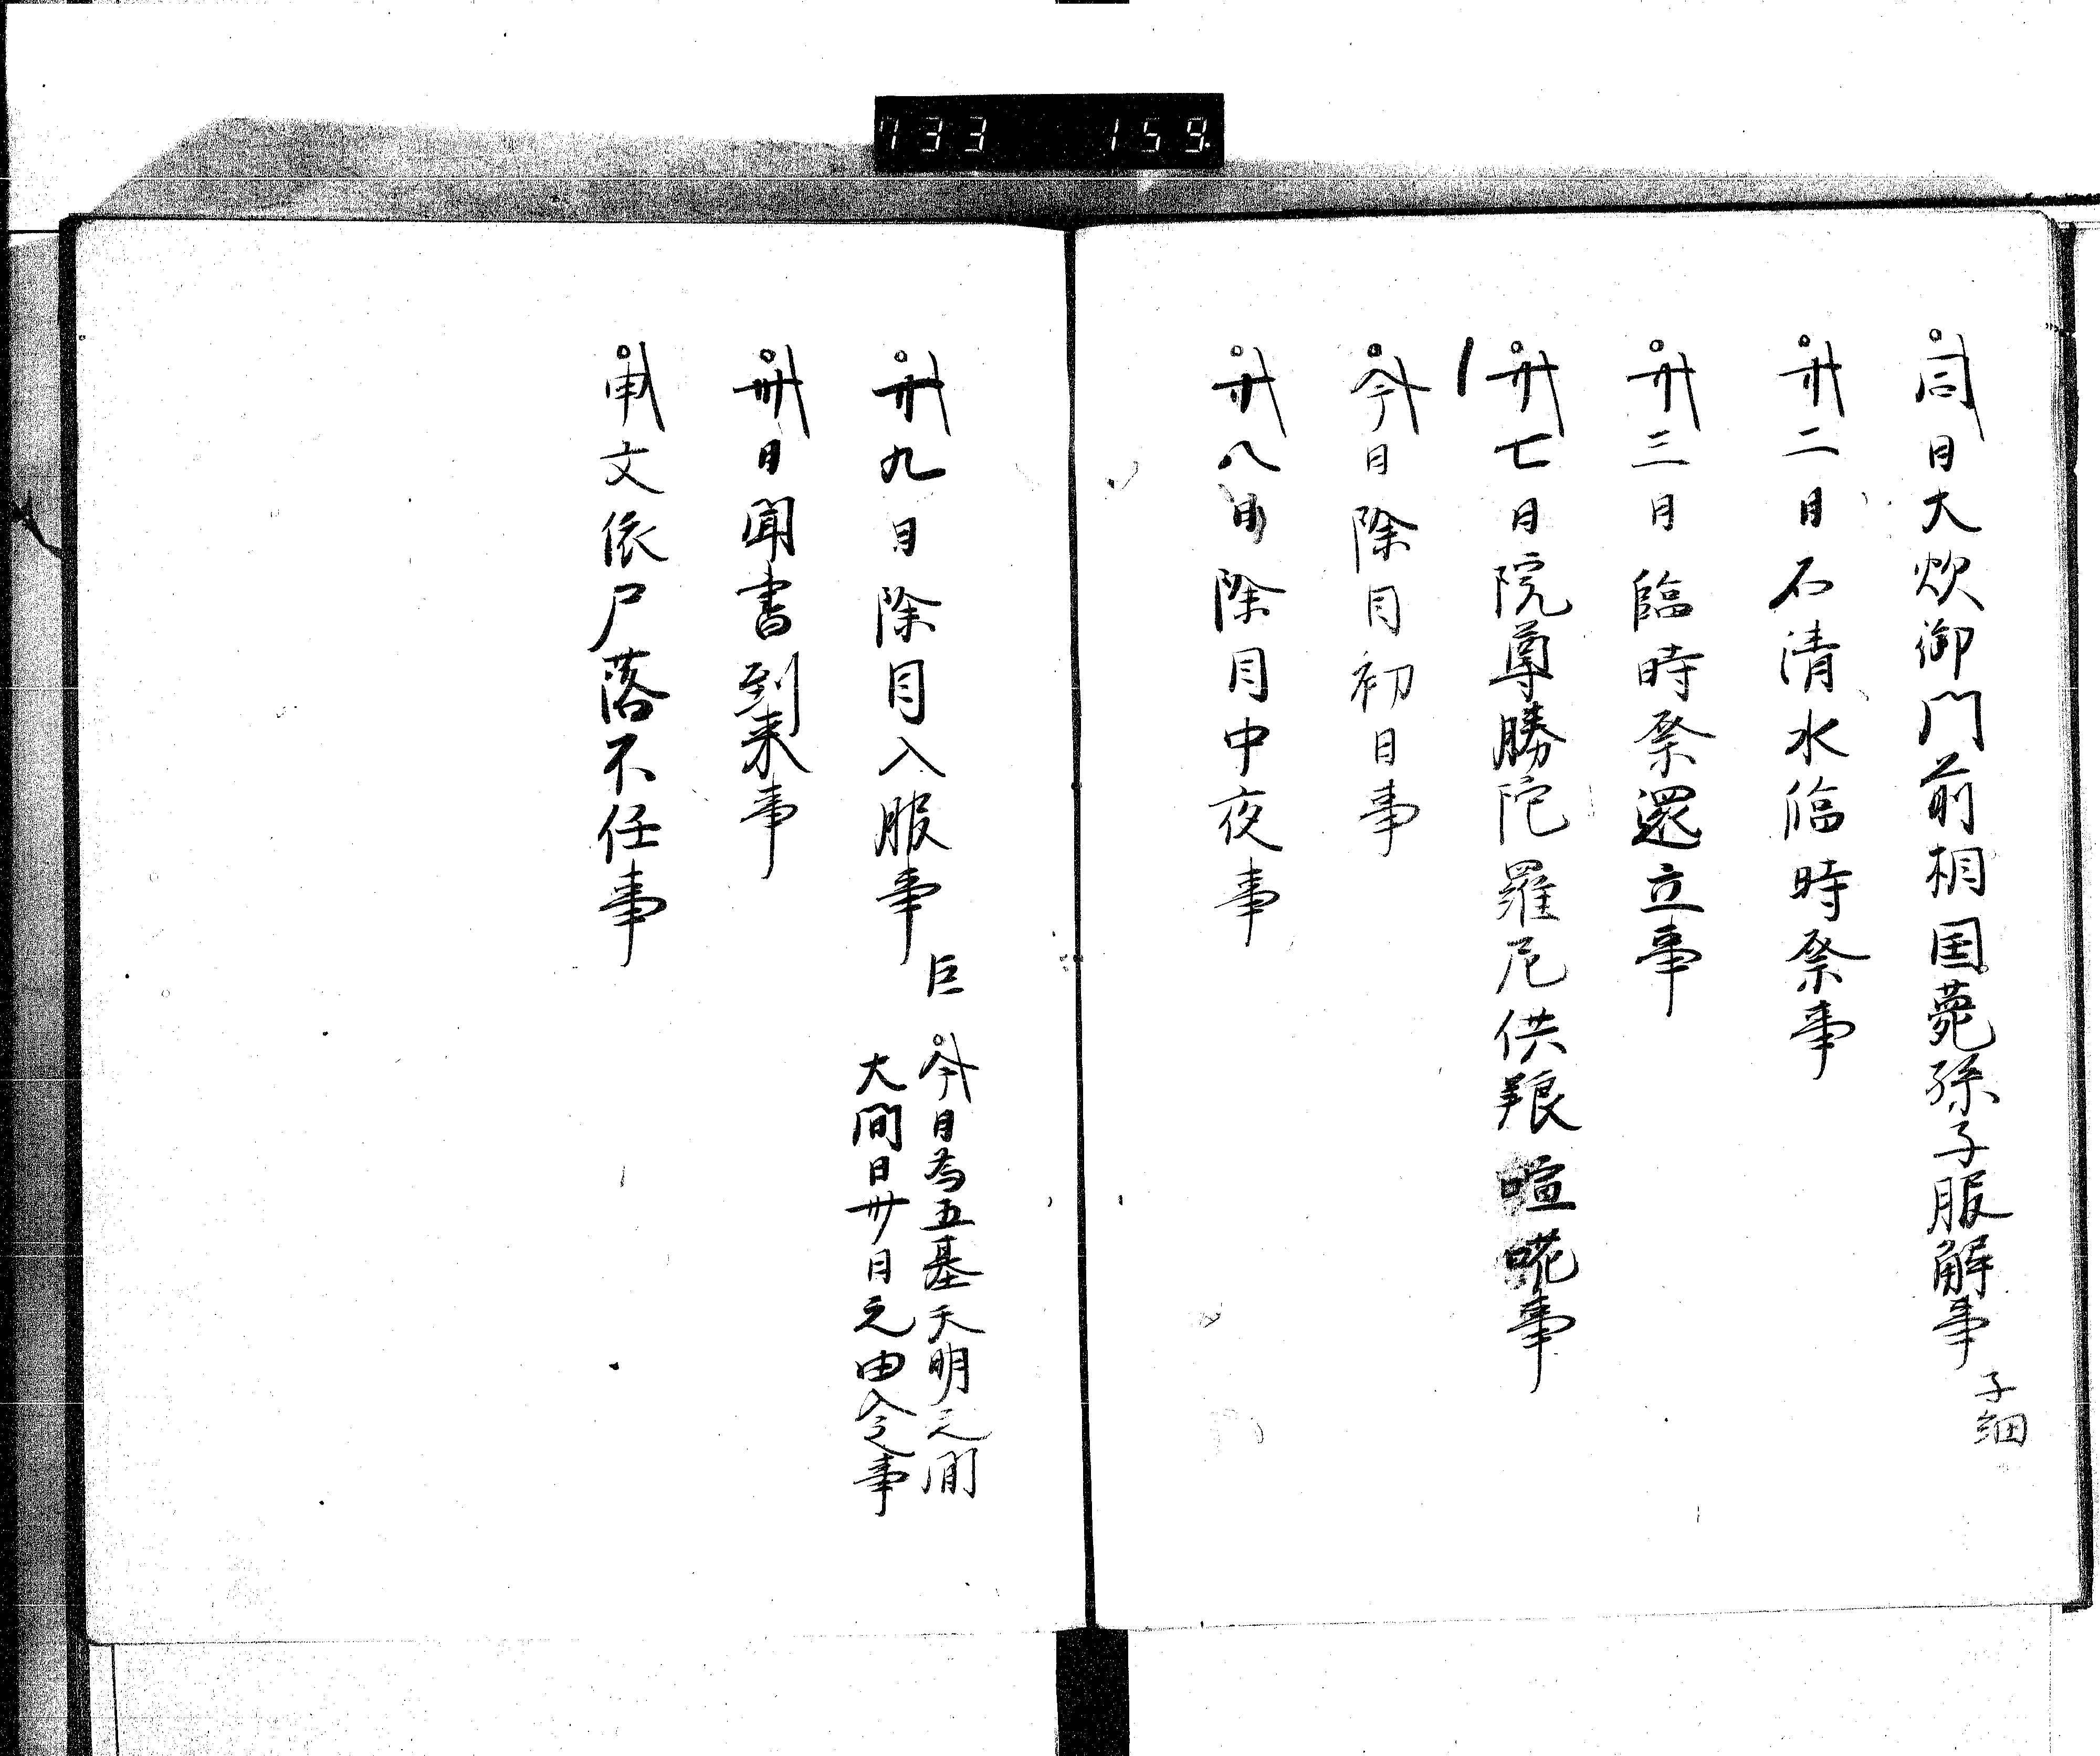 733 159
同日大炊御門前相国薨孫子服解事 子細
廿二日石清水臨時祭事
廿三日臨時祭還立事
廿七日院尊勝陀羅尼供養喧嘩事
今日除目初日事
廿八日除目中夜事
廿九日除目入眼事
今日為五墓天明之間
大間日卅日之由令事
卅日聞書到来事
申文依尸落不任事